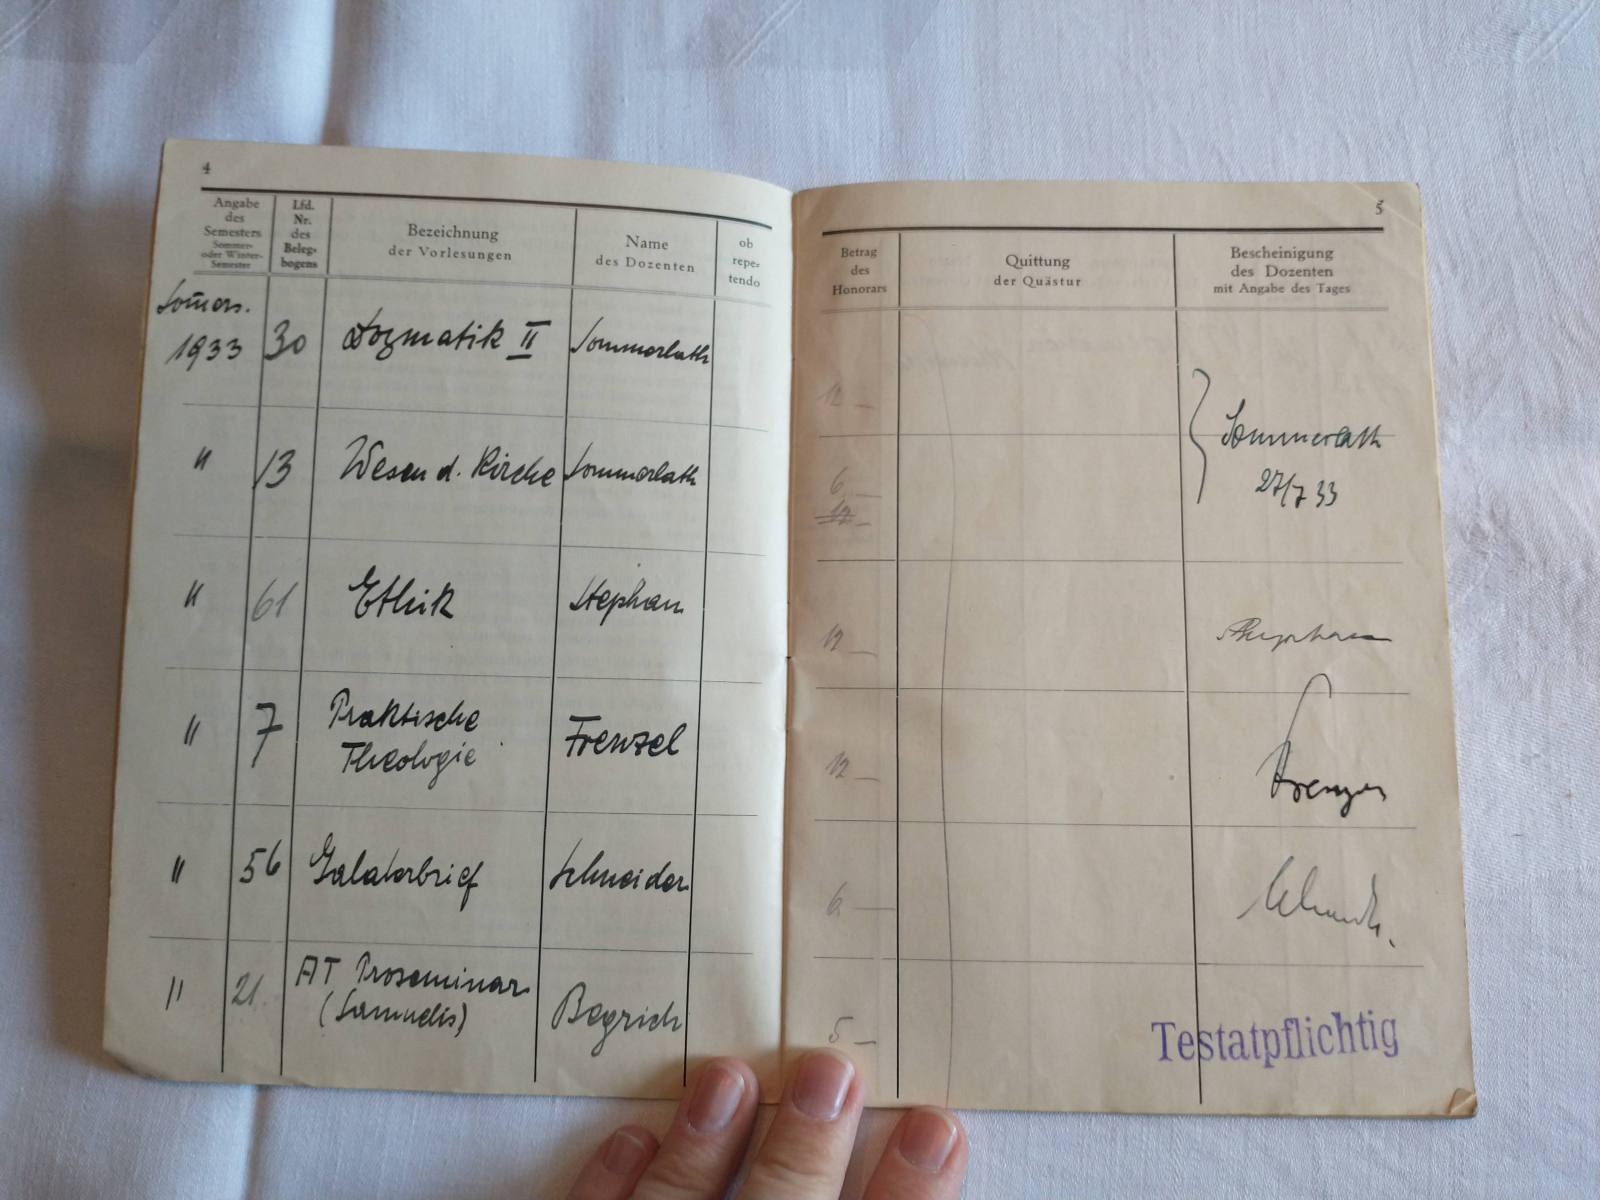 4
Angabe
des
Semesters
Sommer-
oder Winter-
Semester
Lfd.
Nr.
des
Beleg-
bogens
Bezeichnung
der Vorlesungen
Name
des Dozenten
ob
repe-
tendo
Som̄ers.
1933
30
Dogmatik II
Sommerlath
"
13
Wesen d. Kirche
Sommerlath
"
61
Ethik
Stephan
"
7
Praktische
Theologie
Frenzel
"
56
Galaterbrief
Schneider
"
21
AT Proseminar
(Samuelis)
Begrich
5
Betrag
des
Honorars
Quittung
der Quästur
Bescheinigung
des Dozenten
mit Angabe des Tages
12 —
Sommerlath
27/7 33
6 —
12 —
12 —
Stephan
12 —
Frenzel
6 —
5 —
Testatpflichtig